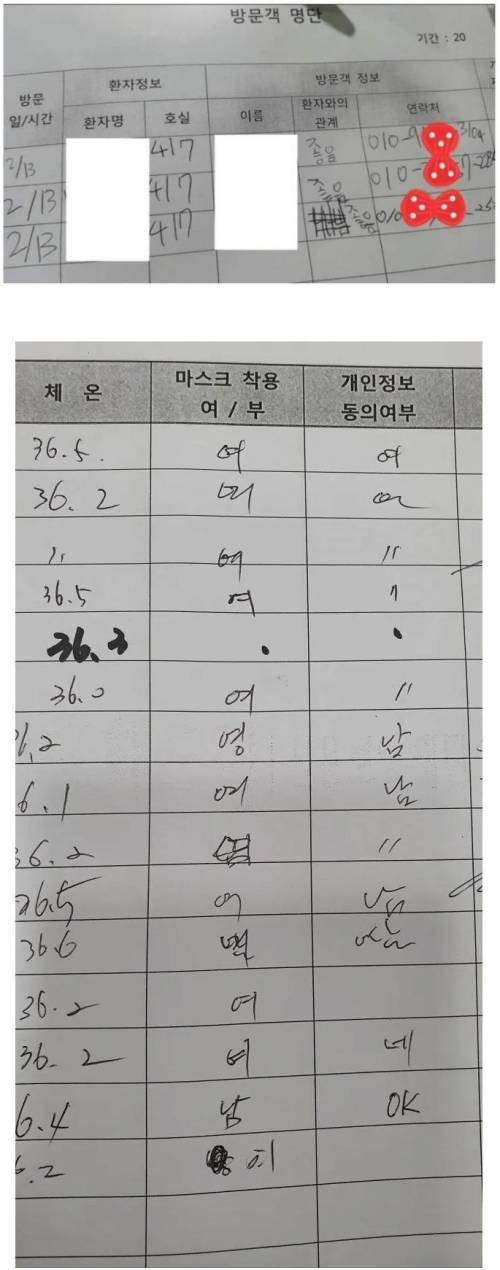 방문객 명단
기간 : 20
방문 일/시간 환자정보 방문객 정보
환자명 호실 이름 환자와의 관계 연락처
2/13 417 좋음 010-9 -3104
2/13 417 좋음 010- 7-
2/13 417 좋음 010 -25
체 온 마스크 착용 여 / 부 개인정보 동의여부
36.5. 여 여
36.2 여 여
〃 여 〃
36.5 여 〃
36.3 . .
36.0 여 〃
6.2 영 남
6.1 여 남
36.2 〃
36.5 여 남
36.6
36.2 여
36.2 여 네
6.4 남 OK
6.2